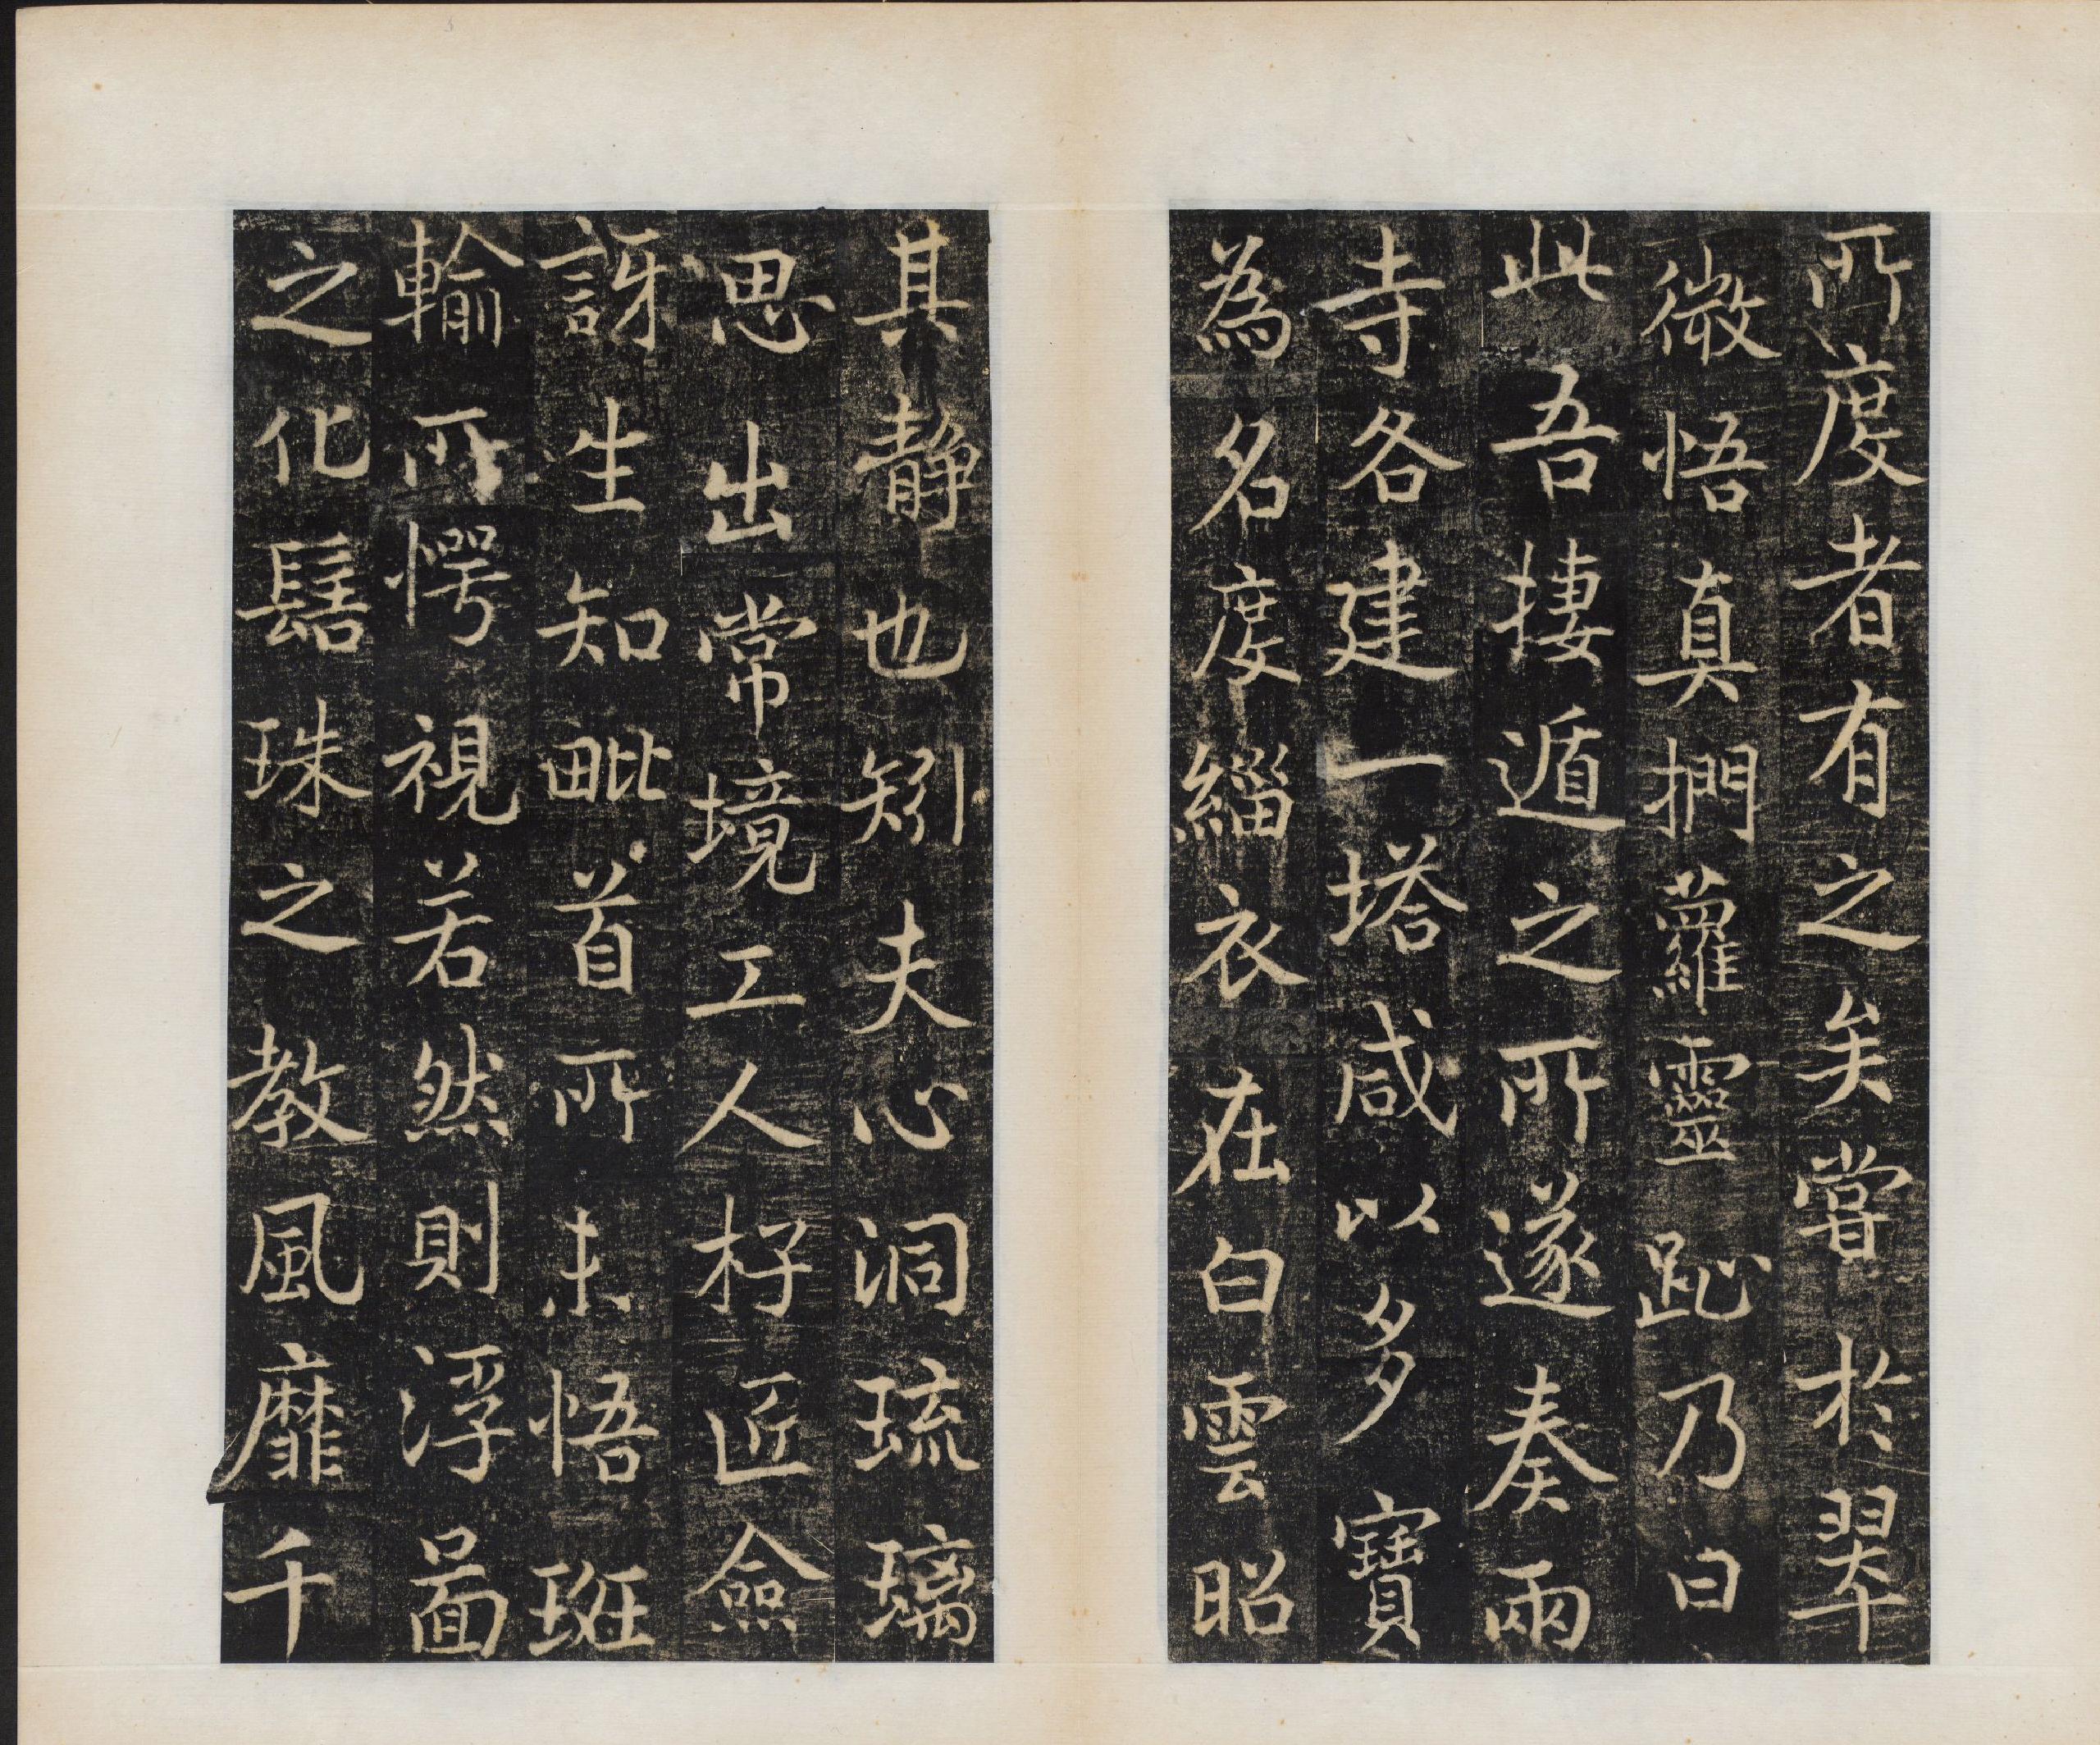 所度者有之矣嘗於翠
微悟真捫蘿靈趾乃曰
此吾捿遁之所遂奏兩
寺各建一塔咸以多寶
為名度緇衣在白雲昭
其静也矧夫心洞琉璃
思出常境工人杍匠僉
訝生知毗首所未悟班
輸所愕視若然則浮啚
之化髻珠之教風靡千